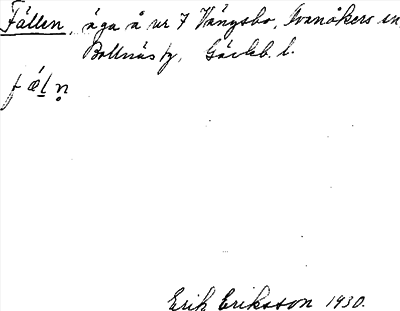 Fällen, äga å nr 7 Vängsbo, Svanåkers en
Bollnäs tg, Gävleb. l.
fæln
Erik Eriksson 1930.